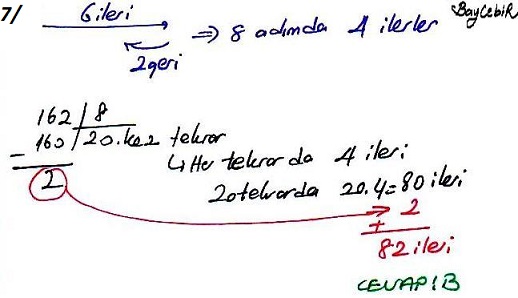 7/ 6 ileri BayCebiR
2geri ⇒ 8 adımda 4 ilerler
162 | 8
- 160 | 20. kez tekrar
2
↳ Her tekrarda 4 ileri
20 tekrarda 20.4=80 ileri
+ 2
82 ileri
CEVAP: B